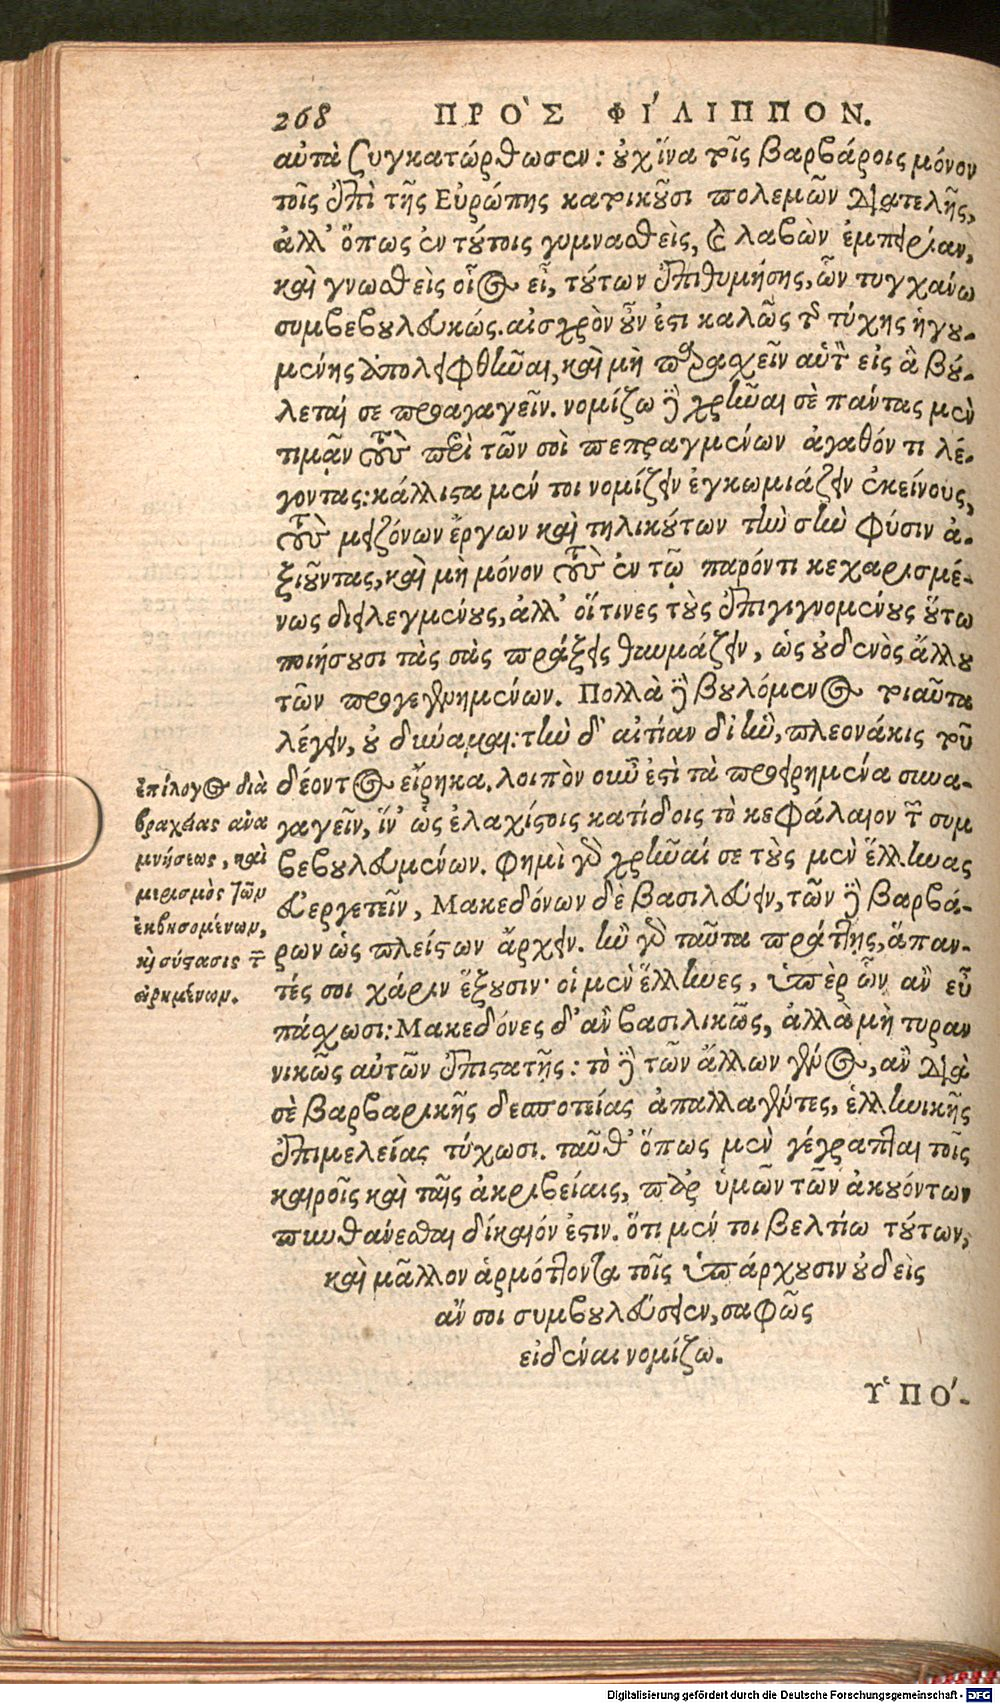 268 ΠΡῸΣ ΦΊΛΙΠΠΟΝ.
αὐτὰ συγκατώρθωσεν: οὐχ ἵνα τοῖς βαρβάροις μόνον
τοῖς ἐπὶ τῆς Εὐρώπης κατοικοῦσι πολεμῶν διατελῇς,
ἀλλ' ὅπως ἐν τούτοις γυμνασθεὶς, καὶ λαβὼν ἐμπειρίαν,
καὶ γνωσθεὶς οἷος εἶ, τούτων ἐπιθυμήσῃς, ὧν τυγχάνω
συμβεβουλευκώς. αἰσχρὸν οὖν ἐστι καλῶς τῆς τύχης ἡγου-
μένης ἀπολειφθῆναι, καὶ μὴ παρασχεῖν αὑτὸν εἰς ἃ βού-
λεταί σε προαγαγεῖν. νομίζω δὲ χρῆναι σὲ πάντας μὲν
τιμᾷν τοὺς περὶ τῶν σοὶ πεπραγμένων ἀγαθόν τι λέ-
γοντας: κάλλιστα μέν τοι νομίζειν ἐγκωμιάζειν ἐκείνους,
τοὺς μειζόνων ἔργων καὶ τηλικούτων τὴν σὴν φύσιν ἀ-
ξιοῦντας, καὶ μὴ μόνον τοὺς ἐν τῷ παρόντι κεχαρισμέ-
νως διειλεγμένους, ἀλλ' οἵτινες τοὺς ἐπιγιγνομένους οὕτω
ποιήσουσι τὰς σὰς πράξεις θαυμάζειν, ὡς οὐδενὸς ἄλλου
τῶν προγεγενημένων. Πολλὰ δὲ βουλόμενος τοιαῦτα
λέγειν, οὐ δύναμαι: τὴν δ' αἰτίαν δι' ἣν, πλεονάκις τοῦ
δέοντος εἴρηκα. λοιπὸν οὖν ἐστὶ τὰ προειρημένα συνα-
γαγεῖν, ἵν' ὡς ἐλαχίστοις κατίδοις τὸ κεφάλαιον τῶν συμ
βεβουλευμένων. Φημὶ γὰρ χρῆναί σε τοὺς μὲν ἕλληνας
εὐεργετεῖν, Μακεδόνων δὲ βασιλεύειν, τῶν δὲ βαρβά-
ρων ὡς πλείστων ἄρχειν. ἢν γὰρ ταῦτα πράττῃς, ἅπαν-
τές σοι χάριν ἕξουσιν· οἱ μὲν ἕλληνες, ὑπὲρ ὧν ἂν εὖ
πάσχωσι: Μακεδόνες δ' ἂν βασιλικῶς, ἀλλὰ μὴ τυραν
νικῶς αὐτῶν ἐπιστατῇς: τὸ δὲ τῶν ἄλλων γένος, ἂν διὰ
σὲ βαρβαρικῆς δεσποτείας ἀπαλλαγέντες, ἑλληνικῆς
ἐπιμελείας τύχωσι. ταῦθ' ὅπως μὲν γέγραπται τοῖς
καιροῖς καὶ ταῖς ἀκριβείαις, παρ' ὑμῶν τῶν ἀκουόντων
πυνθάνεσθαι δίκαιόν ἐστιν. ὅτι μέν τοι βελτίω τούτων,
καὶ μᾶλλον ἁρμόττοντα τοῖς ὑπάρχουσιν οὐδεὶς
ἄν σοι συμβουλεύσειεν, σαφῶς
εἰδέναι νομίζω.
ἐπίλογος διὰ
βραχείας ἀνα
μνήσεως, καὶ
μερισμὸς τῶν
ἐκβησομένων,
καὶ σύστασις τῶν
εἰρημένων.
ὙΠΌ-
Digitalisierung gefördert durch die Deutsche Forschungsgemeinschaft - DFG